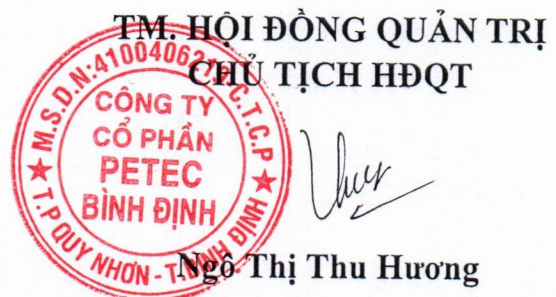 TM. HỘI ĐỒNG QUẢN TRỊ
CHỦ TỊCH HĐQT
M.S.D.N:4100406
C.T.C.P
CÔNG TY
CỔ PHẦN
PETEC
BÌNH ĐỊNH
T.P QUY NHƠN - T. BÌNH ĐỊNH
Ngô Thị Thu Hương